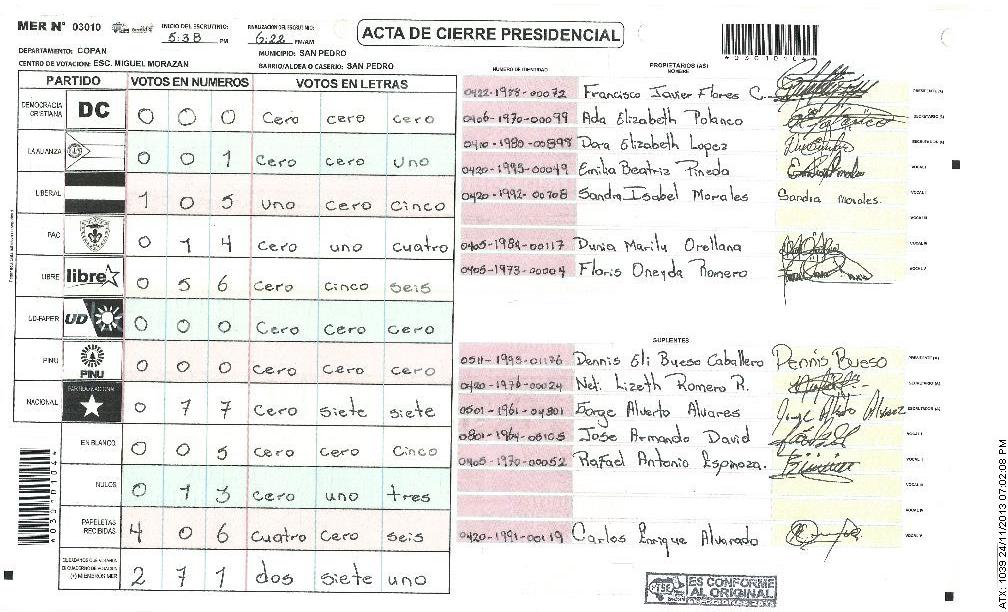 MER N° 03010
INICIO DEL ESCRUTINIO: 5:38 PM
FINALIZACION DEL ESCRUTINIO: 6:22 PM/AM
ACTA DE CIERRE PRESIDENCIAL
DEPARTAMENTO: COPAN
MUNICIPIO: SAN PEDRO
CENTRO DE VOTACION: ESC. MIGUEL MORAZAN
BARRIO/ALDEA O CASERIO: SAN PEDRO
PARTIDO VOTOS EN NUMEROS VOTOS EN LETRAS
DEMOCRACIA CRISTIANA DC 0 0 0 cero cero cero
LA ALIANZA 0 0 1 cero cero uno
LIBERAL 1 0 5 uno cero cinco
PAC 0 1 4 cero uno cuatro
LIBRE libre 0 5 6 cero cinco seis
UD-FAPER UD 0 0 0 cero cero cero
PINU PINU 0 0 0 cero cero cero
NACIONAL PARTIDO NACIONAL 0 7 7 cero siete siete
EN BLANCO 0 0 5 cero cero cinco
NULOS 0 1 3 cero uno tres
PAPELETAS RECIBIDAS 4 0 6 cuatro cero seis
(+) MIEMBROS MER 2 7 1 dos siete uno
NUMERO DE IDENTIDAD
PROPIETARIOS (AS)
NOMBRE
0422-1988-00072 Francisco Javier Flores C.
0406-1970-00099 Ada Elizabeth Polanco
0410-1980-00898 Dora Elizabeth Lopez
0420-1995-00049 Emilia Beatriz Pineda
0420-1992-00708 Sandra Isabel Morales Sandra Morales.
0405-1984-00117 Dunia Marilu Orellana
0405-1973-00004 Floris Oneyda Romero
SUPLENTES
0511-1993-01176 Dennis Eli Bueso Caballero Dennis Bueso
0420-1976-00024 Lizeth Romero R.
0501-1961-04801 Jorge Alverto Alvares
0801-1964-05105 Jose Armando David
0405-1970-00052 Rafael Antonio Espinoza.
0420-1991-00119 Carlos Enrique Alvarado
ES CONFORME AL ORIGINAL
1039 24/11/2013 07:02:08 PM